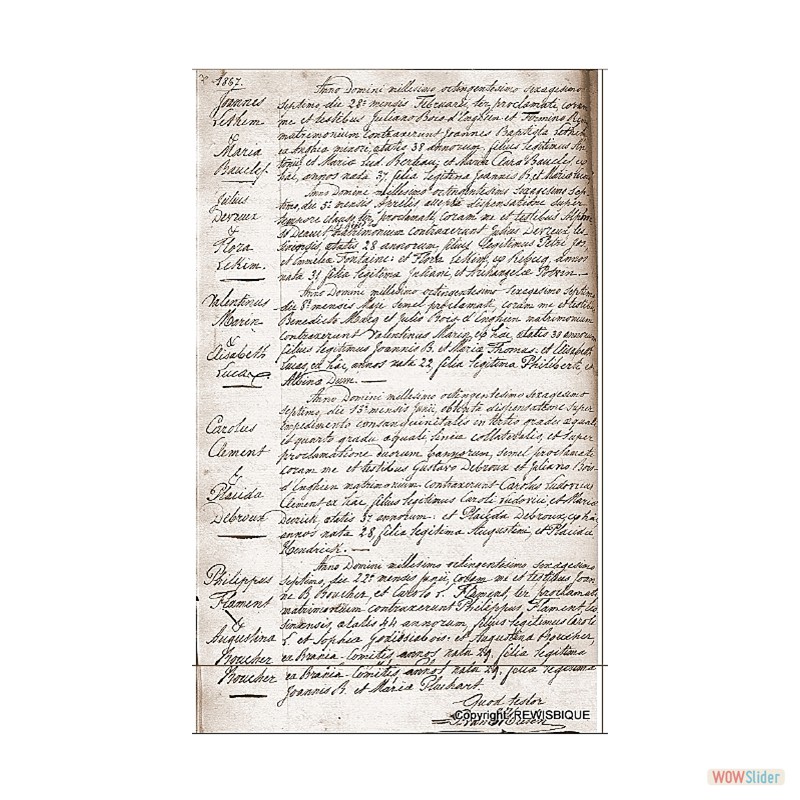 1867.
Joannes
Lekkem
&
Maria
Bauclef
Anno Domini millesimo octingentesimo sexagesimo
septimo, die 28ª mensis Februarii, ter proclamati, coram
me et testibus Juliano Bois d'Enghien et Firmino
matrimonium contraxerunt Joannes Baptista
ex Anglia minori, ætatis 38 annorum, filius legitimus
et Maria et Maria Clara Bauclef, ex
hac, annos nata 37, filia legitima Joannis B. et Maria
Julius
Devreux
&
Flora
Lekim.
Anno Domini millesimo octingentesimo sexagesimo sep-
timo, die 3ª mensis Aprilis, accepta dispensatione super
tempore clauso, ter proclamati, coram me et testibus
matrimonium contraxerunt Julius Devreux,
ætatis 28 annorum, filius legitimus Petri Jos.
et Emmelia Fontaine: et Flora Lekim, ex Rebecq, annos
nata 31 filia legitima Juliani et Archangelæ Potvin.
Valentinus
Marin
&
Elisabeth
Lucas
Anno Domini millesimo octingentesimo sexagesimo septimo
die 8ª mensis Maji semel proclamati, coram me et testibus
Benedicto et Julio Bois d'Enghien matrimonium
contraxerunt Valentinus Marin, ex hac, ætatis 30 annorum
filius legitimus Joannis B. et Maria Thomas: et Elisabeth
Lucas, ex hac, annos nata 22, filia legitima Philiberti et
Albina Dum.
Carolus
Clement
&
Placida
Debroux
Anno Domini millesimo octingentesimo sexagesimo
septimo, die 15ª mensis Junii, obtenta dispensatione super
impedimento consanguinitatis in tertio gradu æquali
et quarto gradu æquali, linea collateralis, et super
proclamatione duorum bannorum, semel proclamati
coram me et testibus Gustavo Debroux et Juliano Bois
d'Enghien matrimonium contraxerunt Carolus Ludovicus
Clement ex hac, filius legitimus Caroli Ludovici et Maria
ætatis 37 annorum: et Placida Debroux, ex hac,
annos nata 28, filia legitima Augustini, et Placida
Hendrick.
Philippus
Flament
&
Augustina
Boucher
Anno Domini millesimo octingentesimo sexagesimo
septimo, die 22ª mensis junii, coram me et testibus Joan-
ne B. Boucher, et Carolo L. Flament, ter proclamati,
matrimonium contraxerunt Philippus Flament,
ætatis 44 annorum, filius legitimus Caroli
L. et Sophia et Augustina Boucher,
ex Brania Comitis, annos nata 29, filia legitima
Boucher
ex Brania Comitis, annos nata 29, filia legitima
Joannis B. et Maria Pluchart
Quod testor
Copyright, REWISBIQUE
WOWSlider